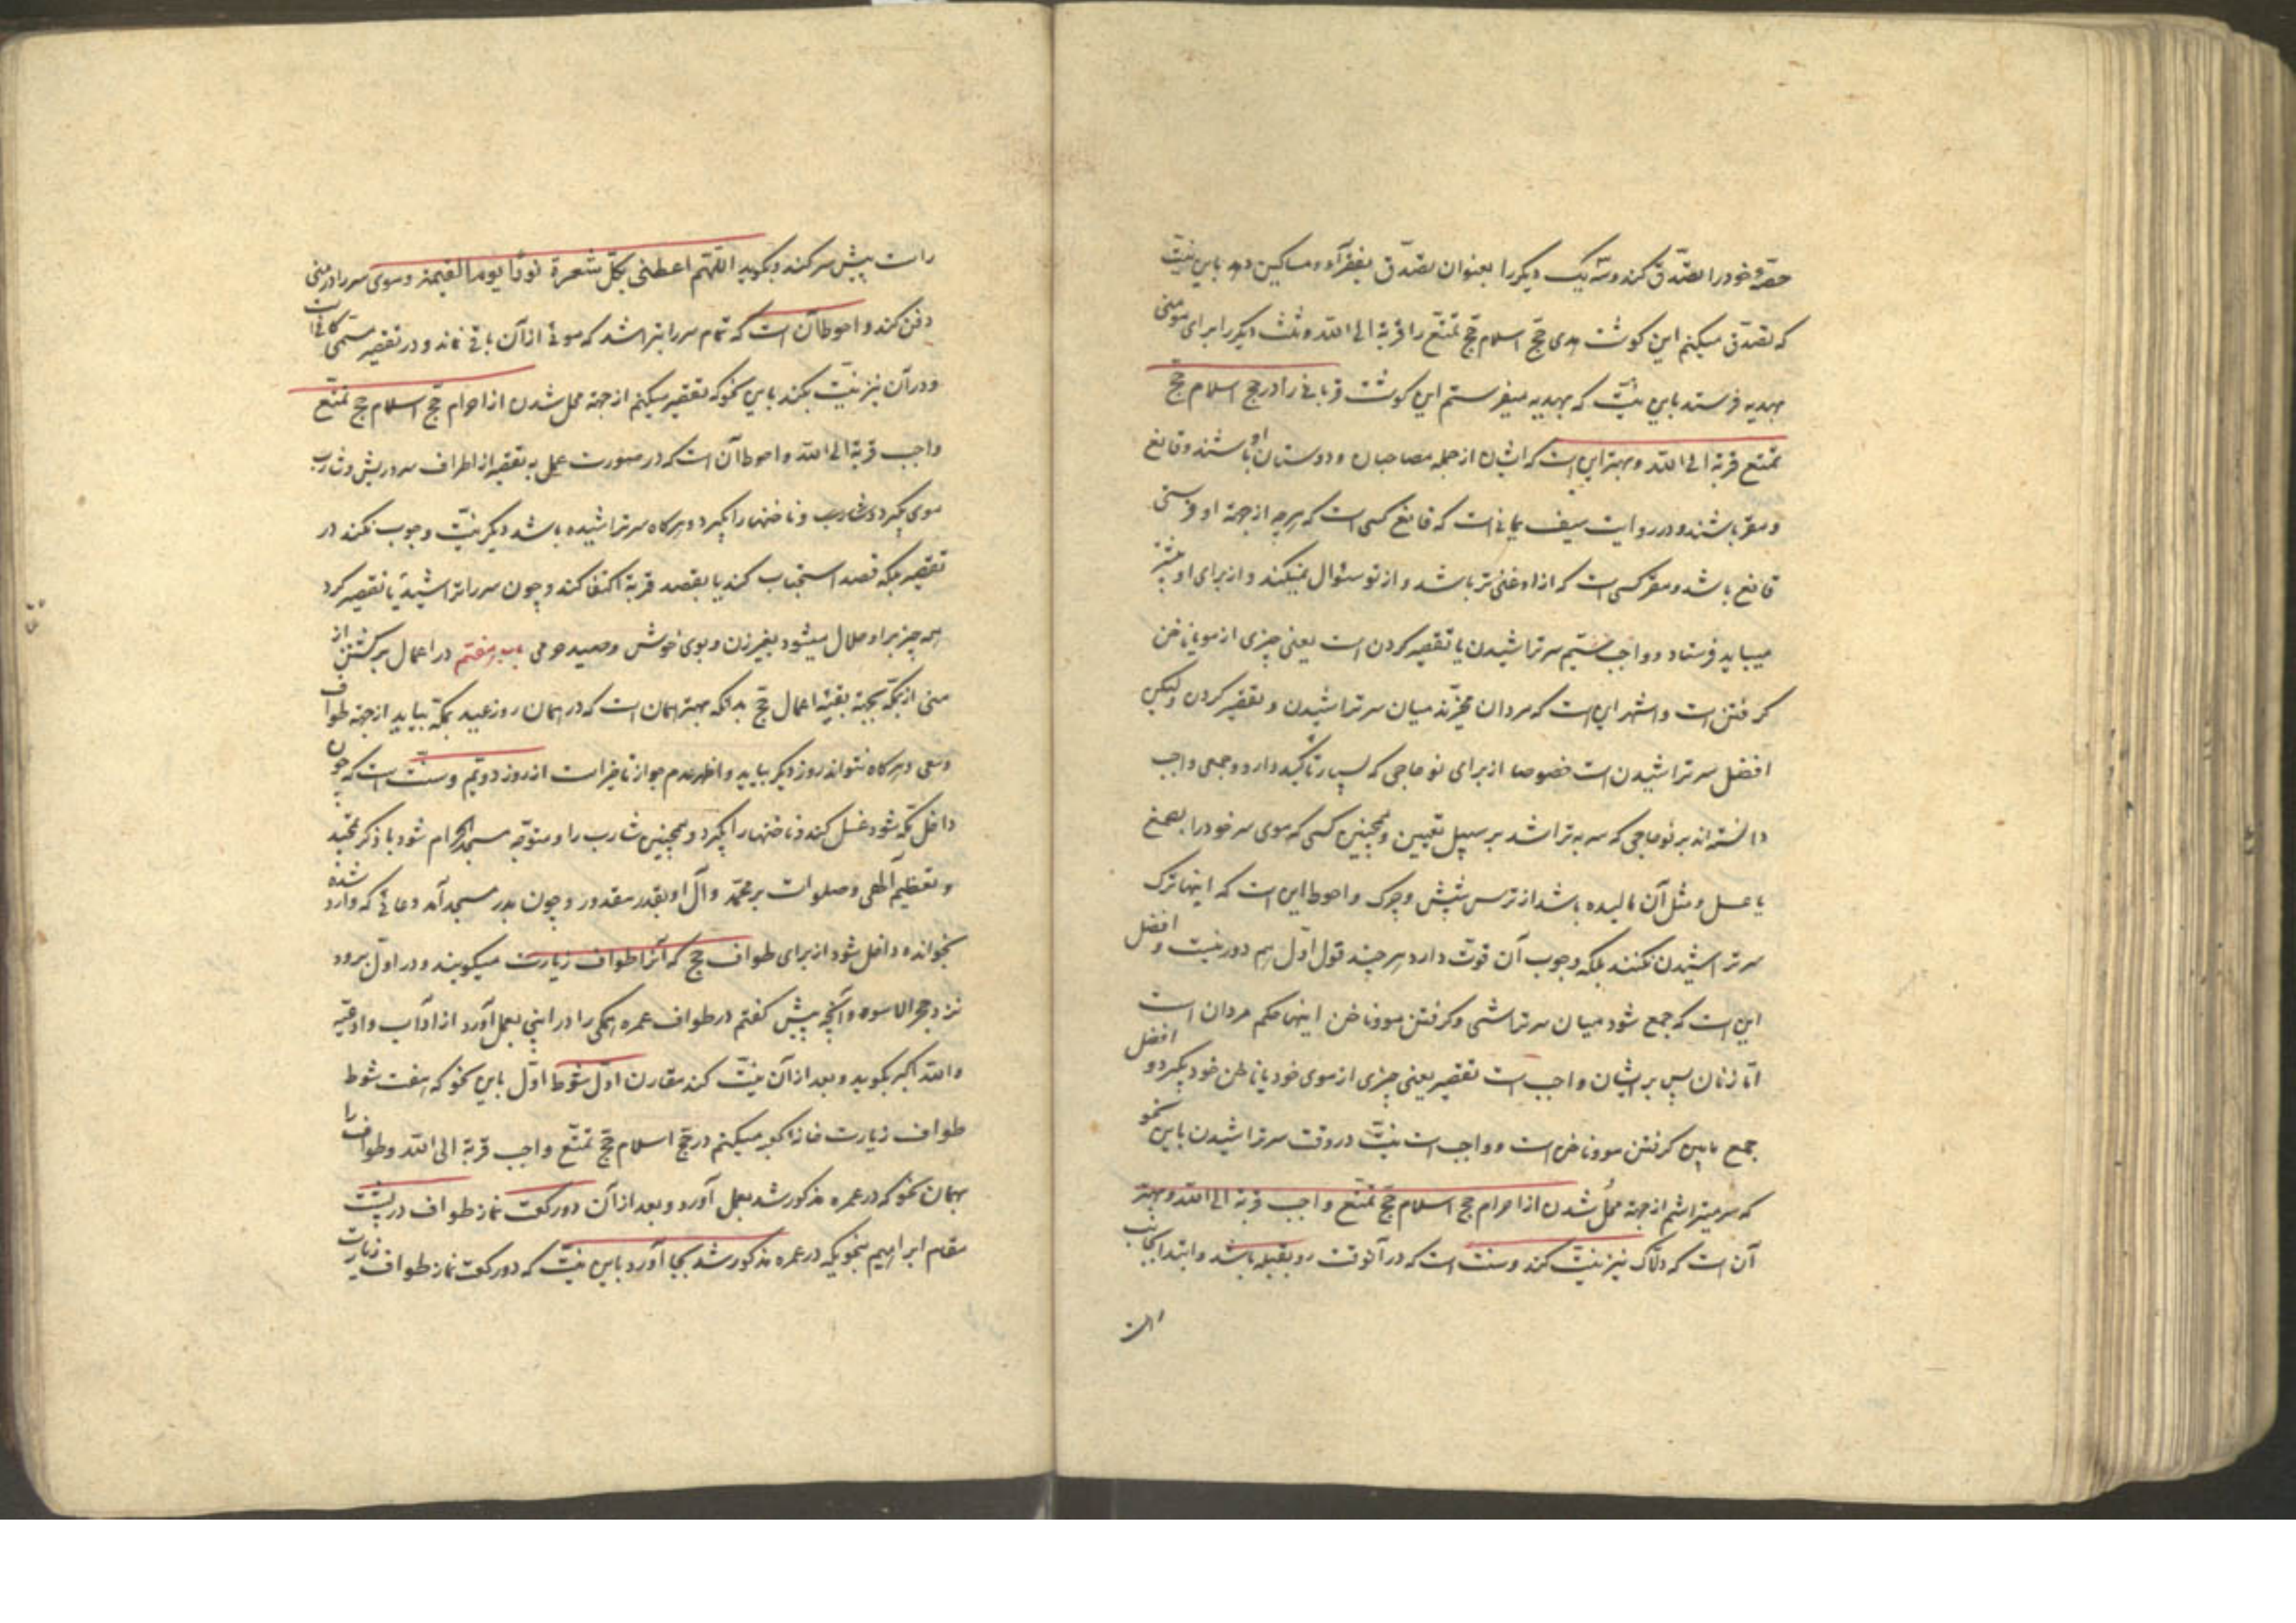 حصّهٔ خود را تصدّق کند و سه یک دیگر را بعنوان تصدّق بفقرآء و مساکین دهد باین نیّت
که تصدّق میکنم این کوشت هدی حجّ اسلام حجّ تمتّع را قربة الی اللّه و ثلث دیگر را برای مومنی
بهدیه فرستد باین نیّت که بهدیه میفرستم این کوشت قربانی را در حج اسلام حج
تمتع قربة الی اللّه و بهتر این است که ایشان از جمله مصاحبان و دوستان او باشند و قانع
و معتر باشند و در روایت سیف یمانی است که قانع کسی است که هرچه از جهة او فرستی
قانع باشد و معتر کسی است که از او غنی تر باشد و از تو سئوال نمیکند و از برای او بیشتر
میباید فرستاد و واجب ششم سر تراشیدن یا تقصیر کردن است یعنی چیزی از مو یا ناخن
کرفتن است و اشهر این است که مردان مخیّرند میان سر تراشیدن و تقصیر کردن ولیکن
افضل سر تراشیدن است خصوصا از برای نو حاجی که بسیار تاکید دارد و جمعی واجب
دانسته اند بر نو حاجی که سر به تراشد بر سبیل تعیین و همچنین کسی که موی سر خود را بصمغ
یا عسل و مثل آن مالیده باشد از ترس شپش و چرک و احوط این است که اینها ترک
سر تراشیدن نکنند بلکه وجوب آن قوّت دارد هر چند قول اوّل هم دور نیست و افضل
این است که جمع شود میان سر تراشی و کرفتن مو و ناخن اینها حکم مردان است
امّا زنان پس بر ایشان واجب است تقصیر یعنی چیزی از موی خود یا ناخن خود بکیرد و افضل
جمع مابین کرفتن مو و ناخن است و واجب است نیّت در وقت سر تراشیدن باین نحو
که سر میتراشم از جهة محلّ شدن از احرام حج اسلام حجّ تمتّع واجب قربة الی اللّه و بهتر
آن است که دلّاک نیز نیّت کند و سنّت است که در آنوقت رو بقبله باشد و ابتدا بجانب
راست
راست پیش سر کند و بکوید اللّهمّ اعطنی بکلّ شعرة نورًا یوم القیمة و موی سر را در منی
دفن کند و احوط آن است که تمام سر را بتراشد که موئی از آن باقی نماند و در تقصیر مسمّی کافی است
و در آن نیز نیّت بکند باین نحو که تقصیر میکنم از جهة محل شدن از احرام حجّ اسلام حج تمتّع
واجب قربة الی اللّه و احوط آن است که در صورت عمل به تقصیر از اطراف سر و ریش و شارب
موی بکیرد و شارب و ناخنها را بکیرد و هرکاه سر تراشیده باشد دیکر نیّت وجوب نکند در
تقصیر بلکه قصد استحباب کند یا بقصد قربة اکتفا کند و چون سر را تراشید یا تقصیر کرد
همه چیز بر او حلال میشود بغیر زن و بوی خوش و صید حرمی باب هفتم در اعمال برکشتن از
منی از بمکّه بجهة بقیّه اعمال حجّ بدانکه بهتر همان است که در همان روز عید بمکّه بیاید از جهة طواف
و سعی و هرکاه نتواند روز دیکر بیاید و اظهر عدم جواز تاخیر است از روز دوّیم و سنّت است که چون
داخل مکّه شود غسل کند و ناخنها را بکیرد و همچنین شارب را و متوّجه مسجد الحرام شود با ذکر تمجید
و تعظیم آلهی و صلوات بر محمّد و آل او بقدر مقدور و چون بدر مسجد آمد دعائی که وارد شده
بخواند و داخل شود از برای طواف حج که آنرا طواف زیارت میکویند و در اوّل برود
نزد حجر الاسود و آنچه پیش کفتم در طواف عمره همکی را در اینجا بعمل آورد از آداب و ادعیّه
و اللّه اکبر بکوید و بعد از آن نیّت کند مقارن اوّل شوط اوّل باین نحو که هفت شوط
طواف زیارت خانه کعبه میکنم در حجّ اسلام حجّ تمتّع واجب قربة الی اللّه و طواف را
بهمان نحو که در عمره مذکور شد بعمل آورد و بعد از آن دو رکعت نماز طواف در پشت
مقام ابراهیم بنحویکه در عمره مذکور شد بجا آورد باین نیّت که دو رکعت نماز طواف زیارت